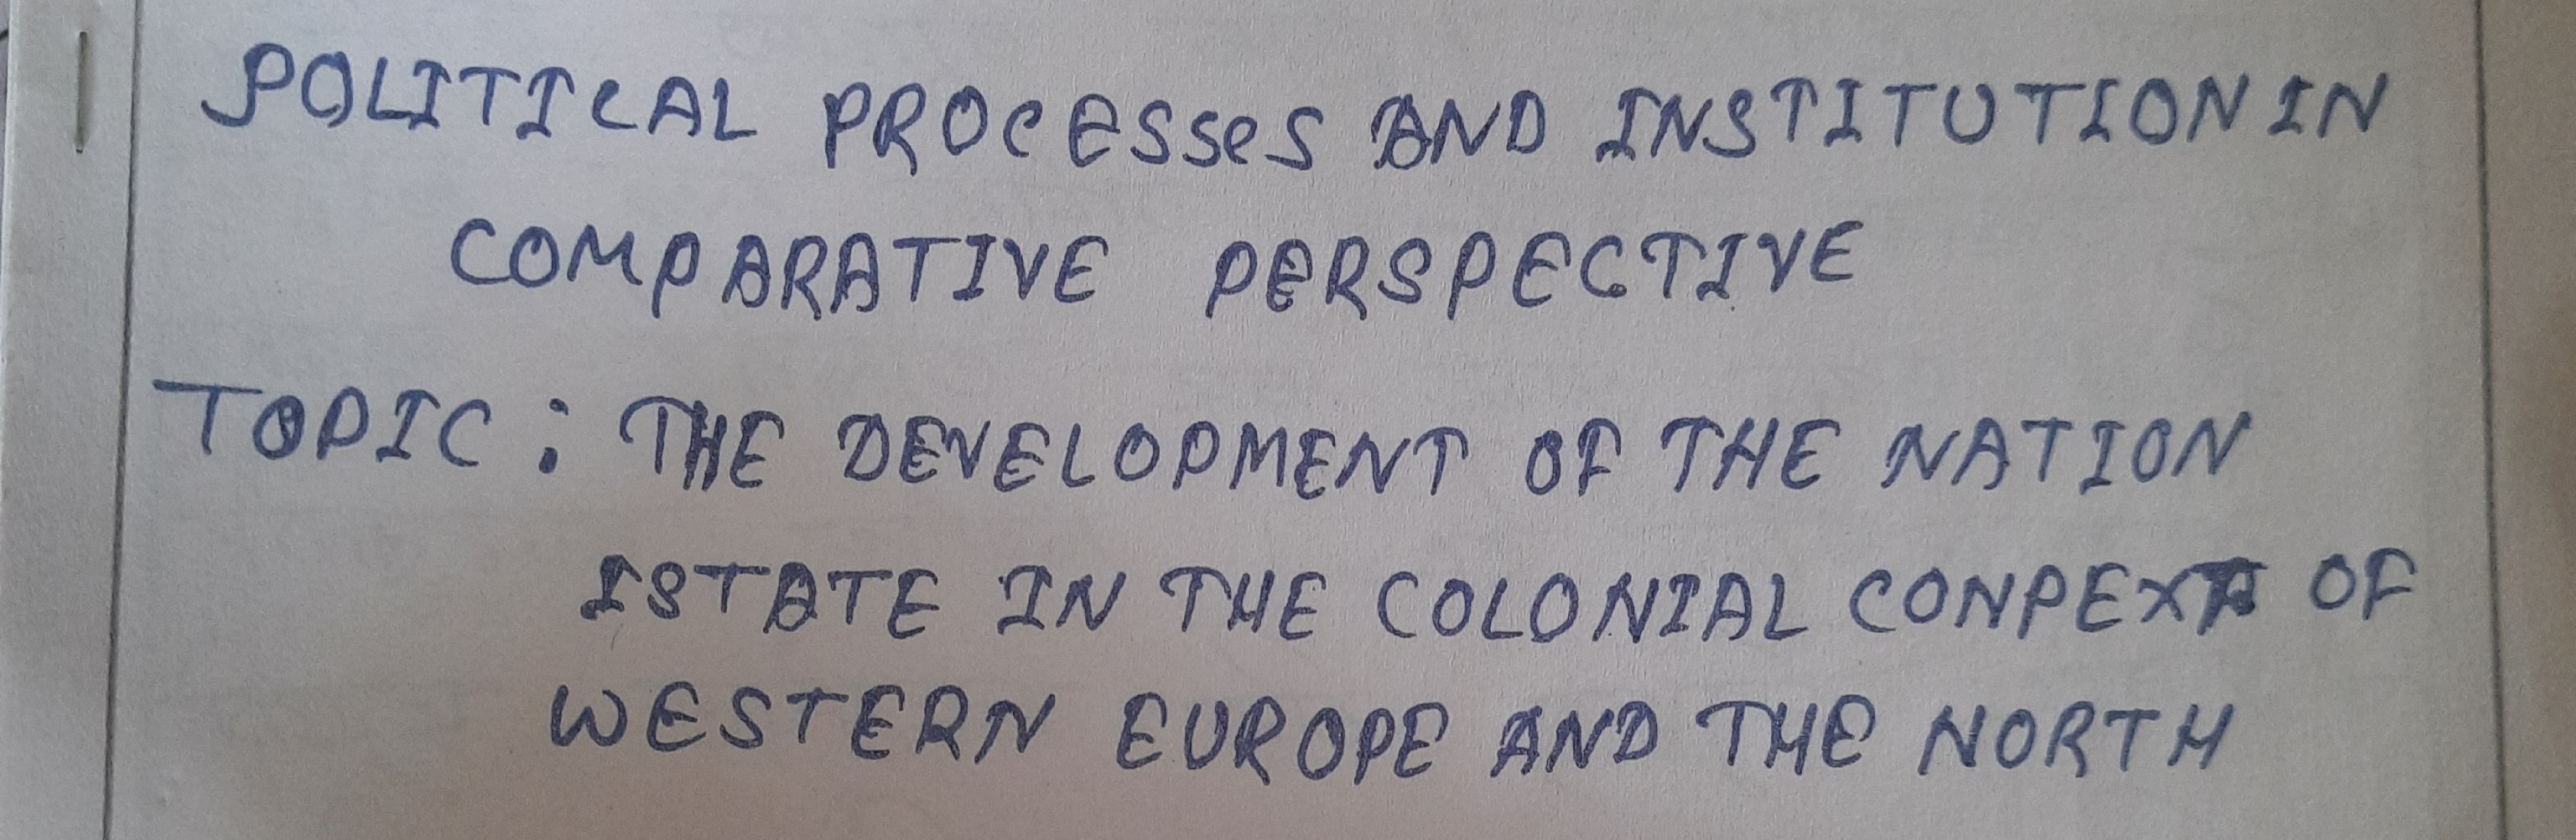 POLITICAL PROCESSES AND INSTITUTION IN
COMPARATIVE PERSPECTIVE
TOPIC : THE DEVELOPMENT OF THE NATION
ISTATE IN THE COLONIAL OF
WESTERN EUROPE AND THE NORTH